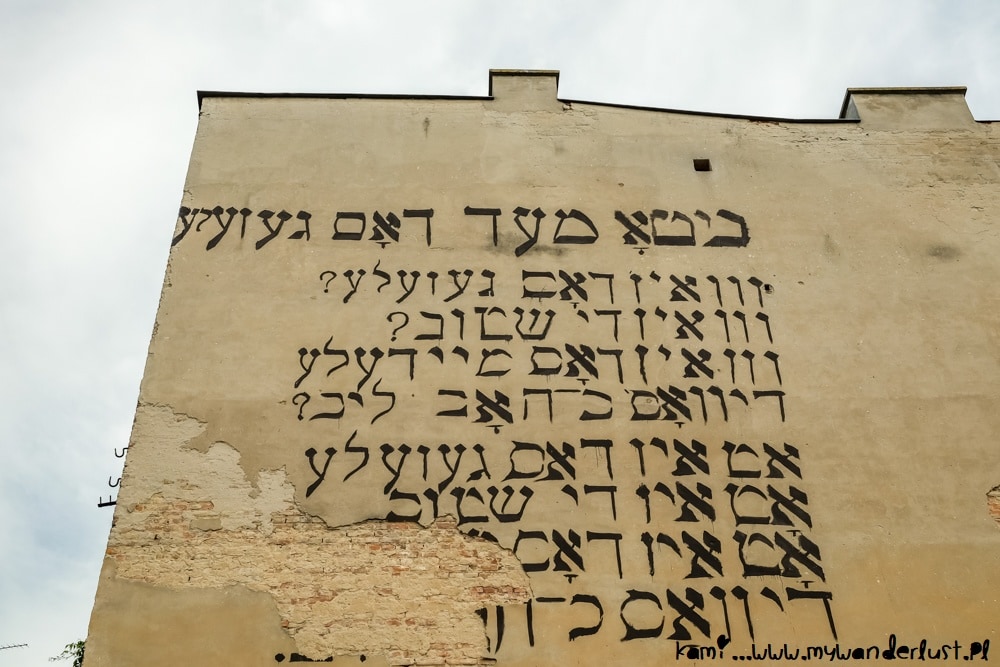 דאָס
ווו איז דאָס געזעלע?
ווו איז די שטוב?
ווו איז דאָס מיידעלע
די וואָס כ־האָב ליב?
אָט איז דאָס געזעלע
אָט איז די שטוב
אָט איז דאָס
די וואָס
kami ...www.mywanderlust.pl